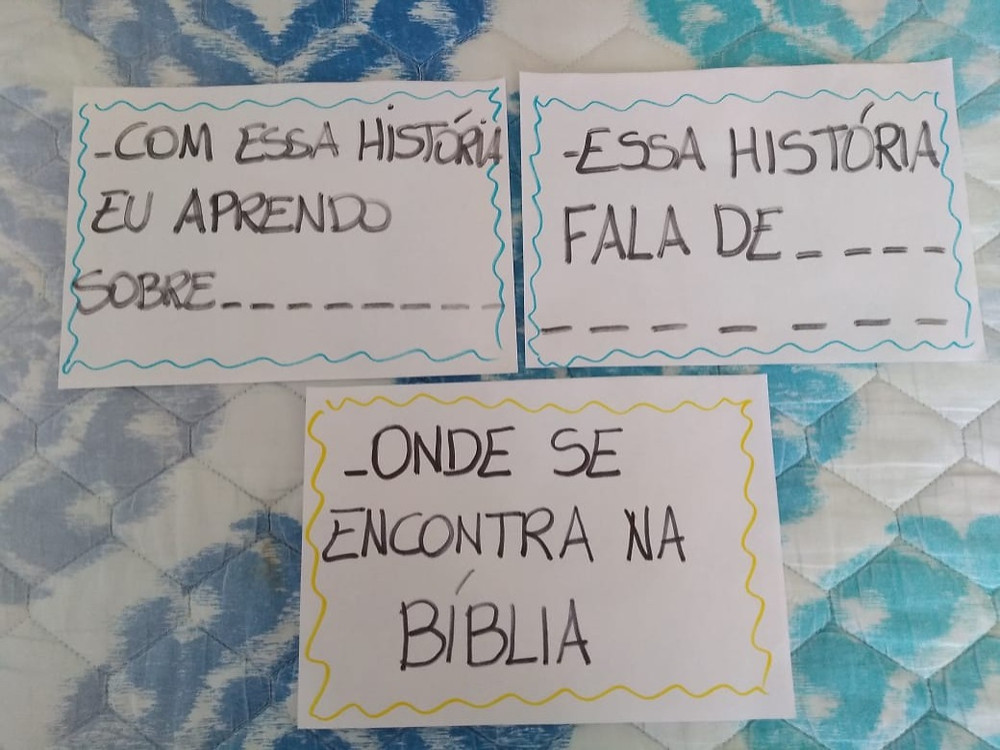 -COM ESSA HISTÓRIA
EU APRENDO
SOBRE_ _ _ _ _ _ _ _ _
-ESSA HISTÓRIA
FALA DE_ _ _ _
_ _ _ _ _ _ _
-ONDE SE
ENCONTRA NA
BÍBLIA